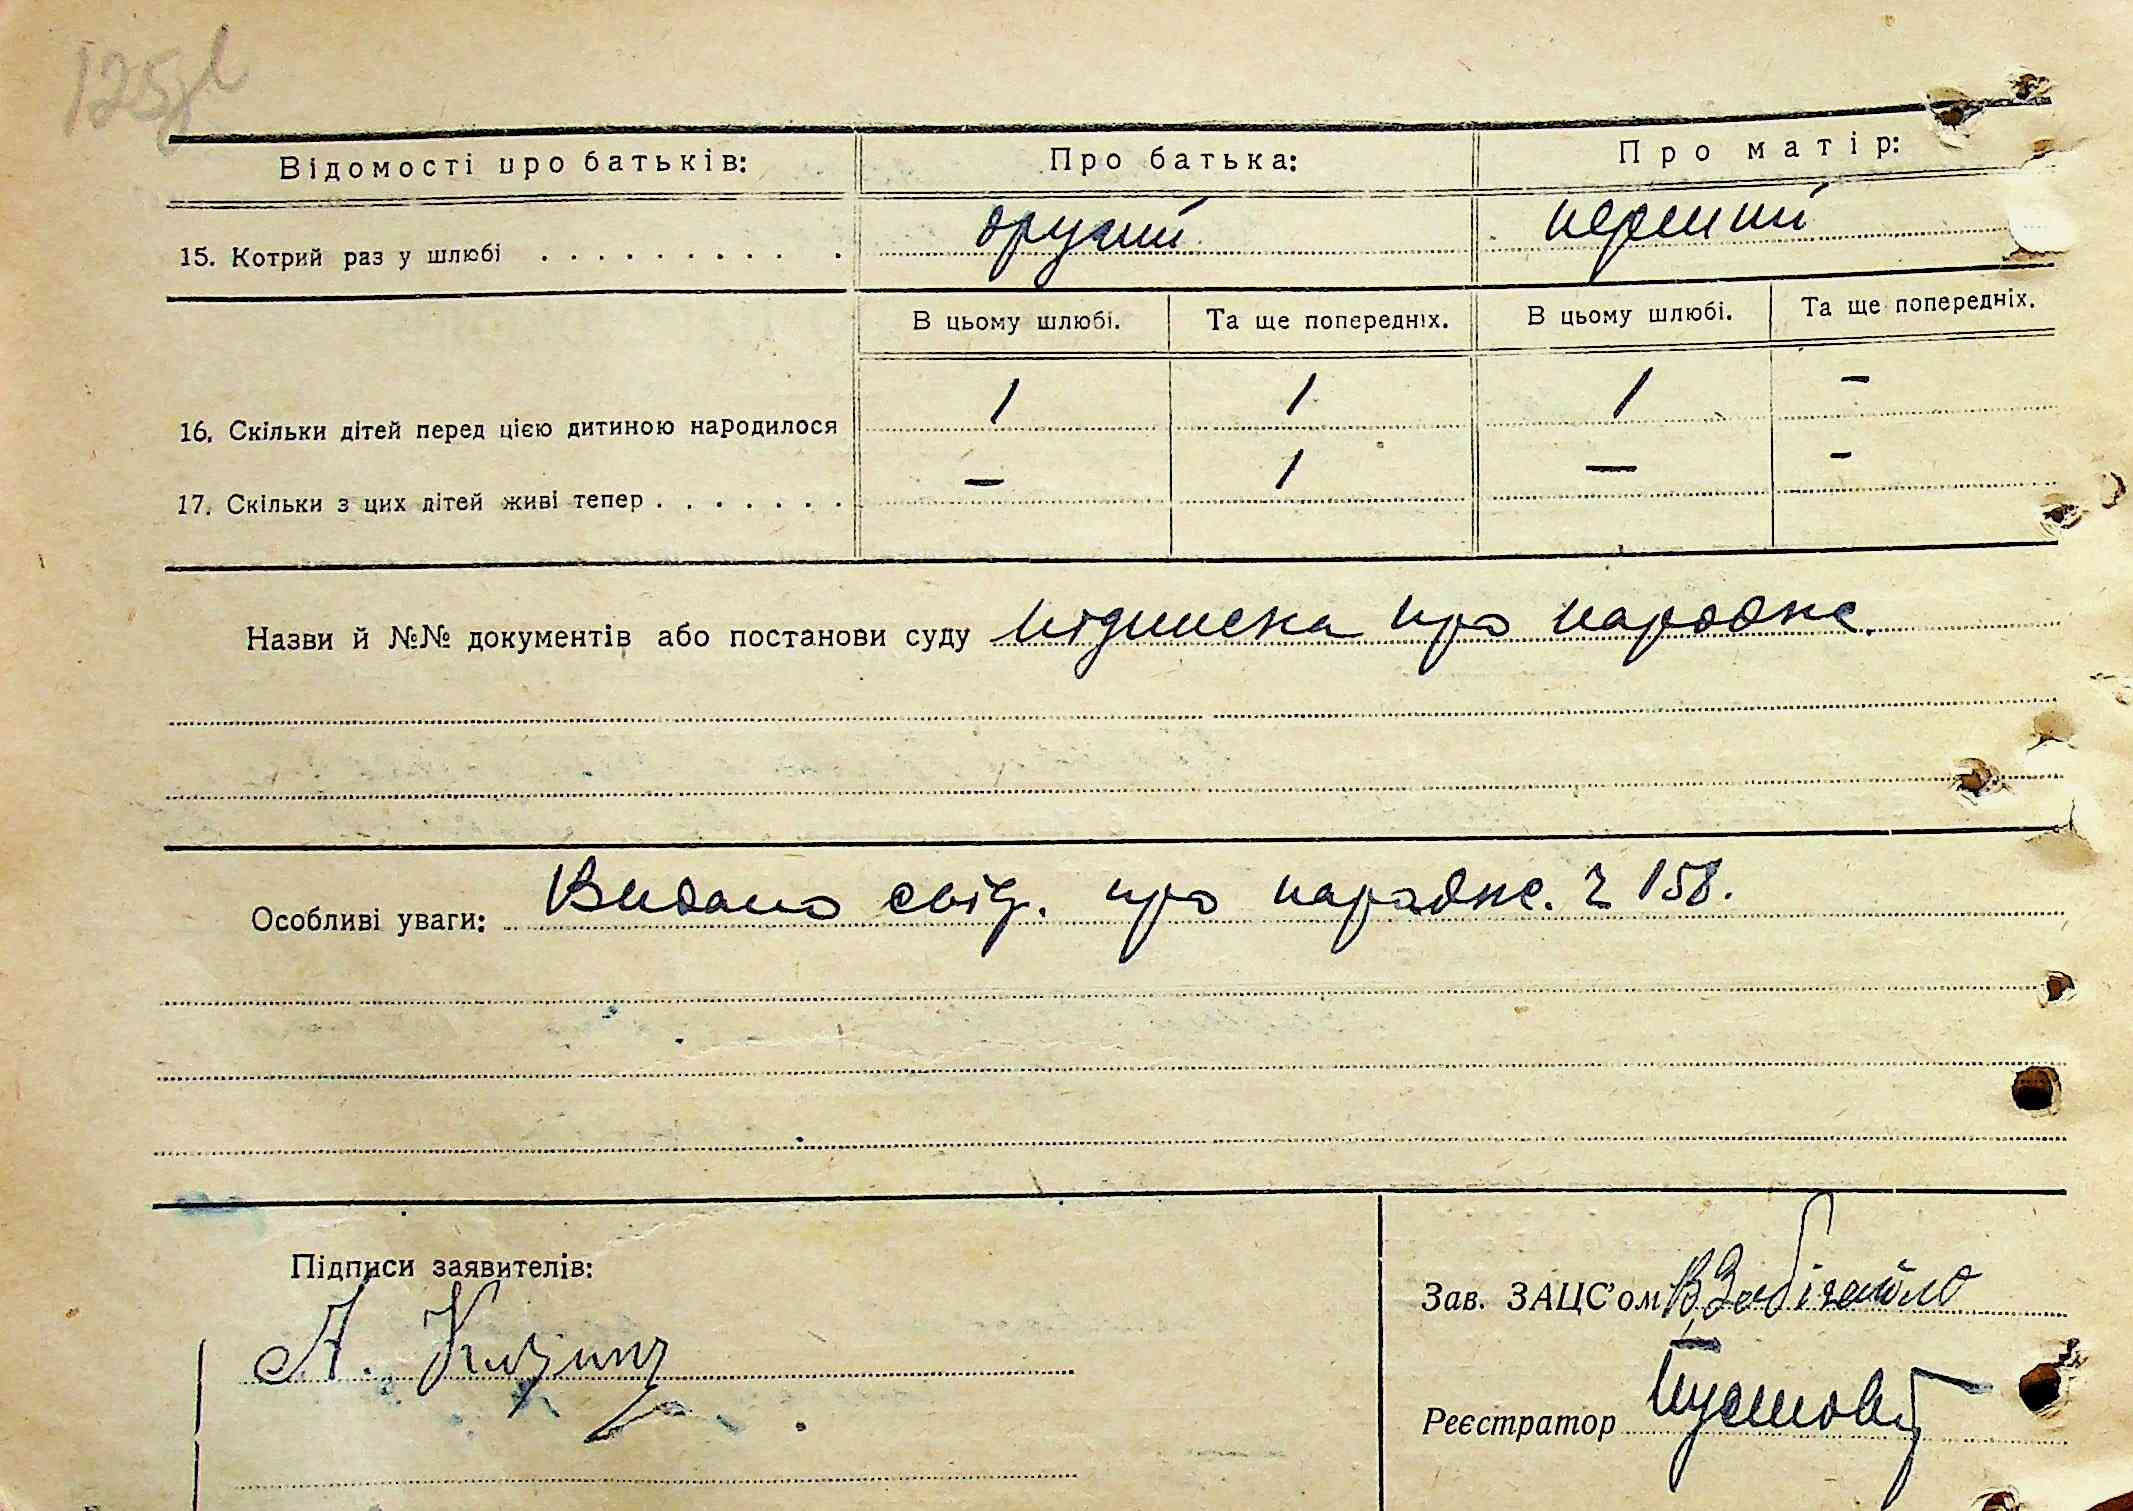 125
Відомості про батьків: Про батька: Про матір:
15. Котрий раз у шлюбі . . . . . . . . . . . другий перший
В цьому шлюбі. Та ще попередніх. В цьому шлюбі. Та ще попередніх.
16. Скільки дітей перед цією дитиною народилося 1 1 1 –
17. Скільки з цих дітей живі тепер . . . . . . . – 1 – –
Назви й №№ документів або постанови суду підписка про народж.
Особливі уваги: Видано свід. про народж. Ч 158.
Підписи заявителів:
А.
Зав. ЗАЦС'ом В Забігайло
Реєстратор